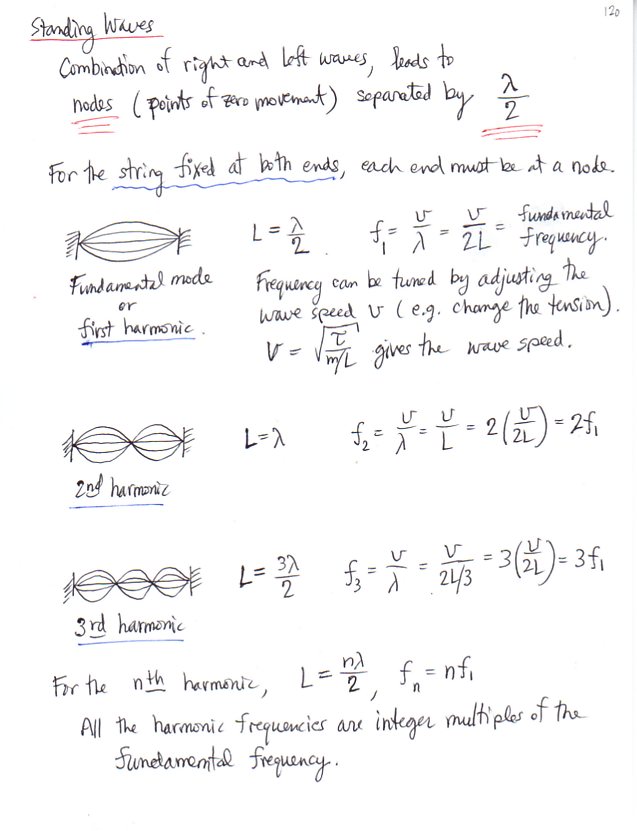 120
Standing Waves
Combination of right and left waves, leads to
nodes (points of zero movement) separated by λ/2
For the string fixed at both ends, each end must be at a node.
L = λ/2   f₁ = v/λ = v/2L = fundamental frequency.
Fundamental mode
or
first harmonic.
Frequency can be tuned by adjusting the
wave speed v (e.g. change the tension).
v = √(τ/(m/L)) gives the wave speed.
L = λ   f₂ = v/λ = v/L = 2(v/2L) = 2f₁
2nd harmonic
L = 3λ/2   f₃ = v/λ = v/(2L/3) = 3(v/2L) = 3f₁
3rd harmonic
For the nth harmonic, L = nλ/2, fₙ = nf₁
All the harmonic frequencies are integer multiples of the
fundamental frequency.